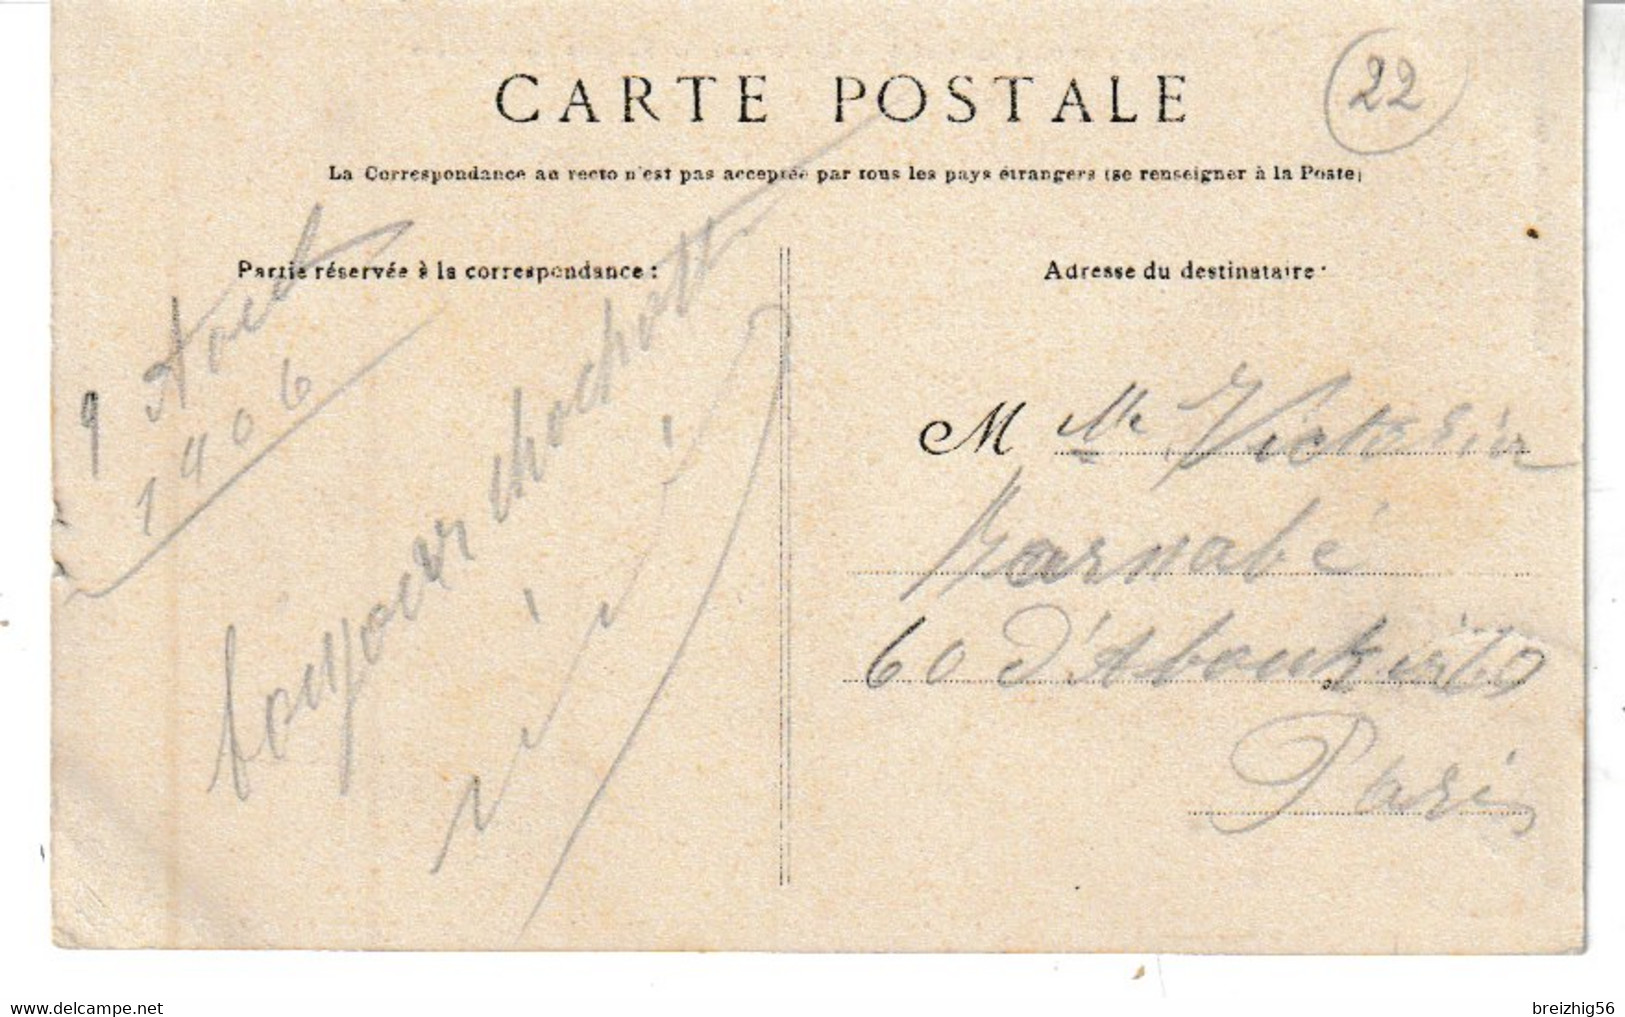 22
CARTE POSTALE
La Correspondance au recto n'est pas acceptée par tous les pays étrangers (se renseigner à la Poste)
Partie réservée à la correspondance :
9 Aout
1906
bonjour chochotte
Adresse du destinataire :
M elle Victorin
Barnabé
60 d'Aboukir 60
Paris
https://www.delcampe.net
breizhig56